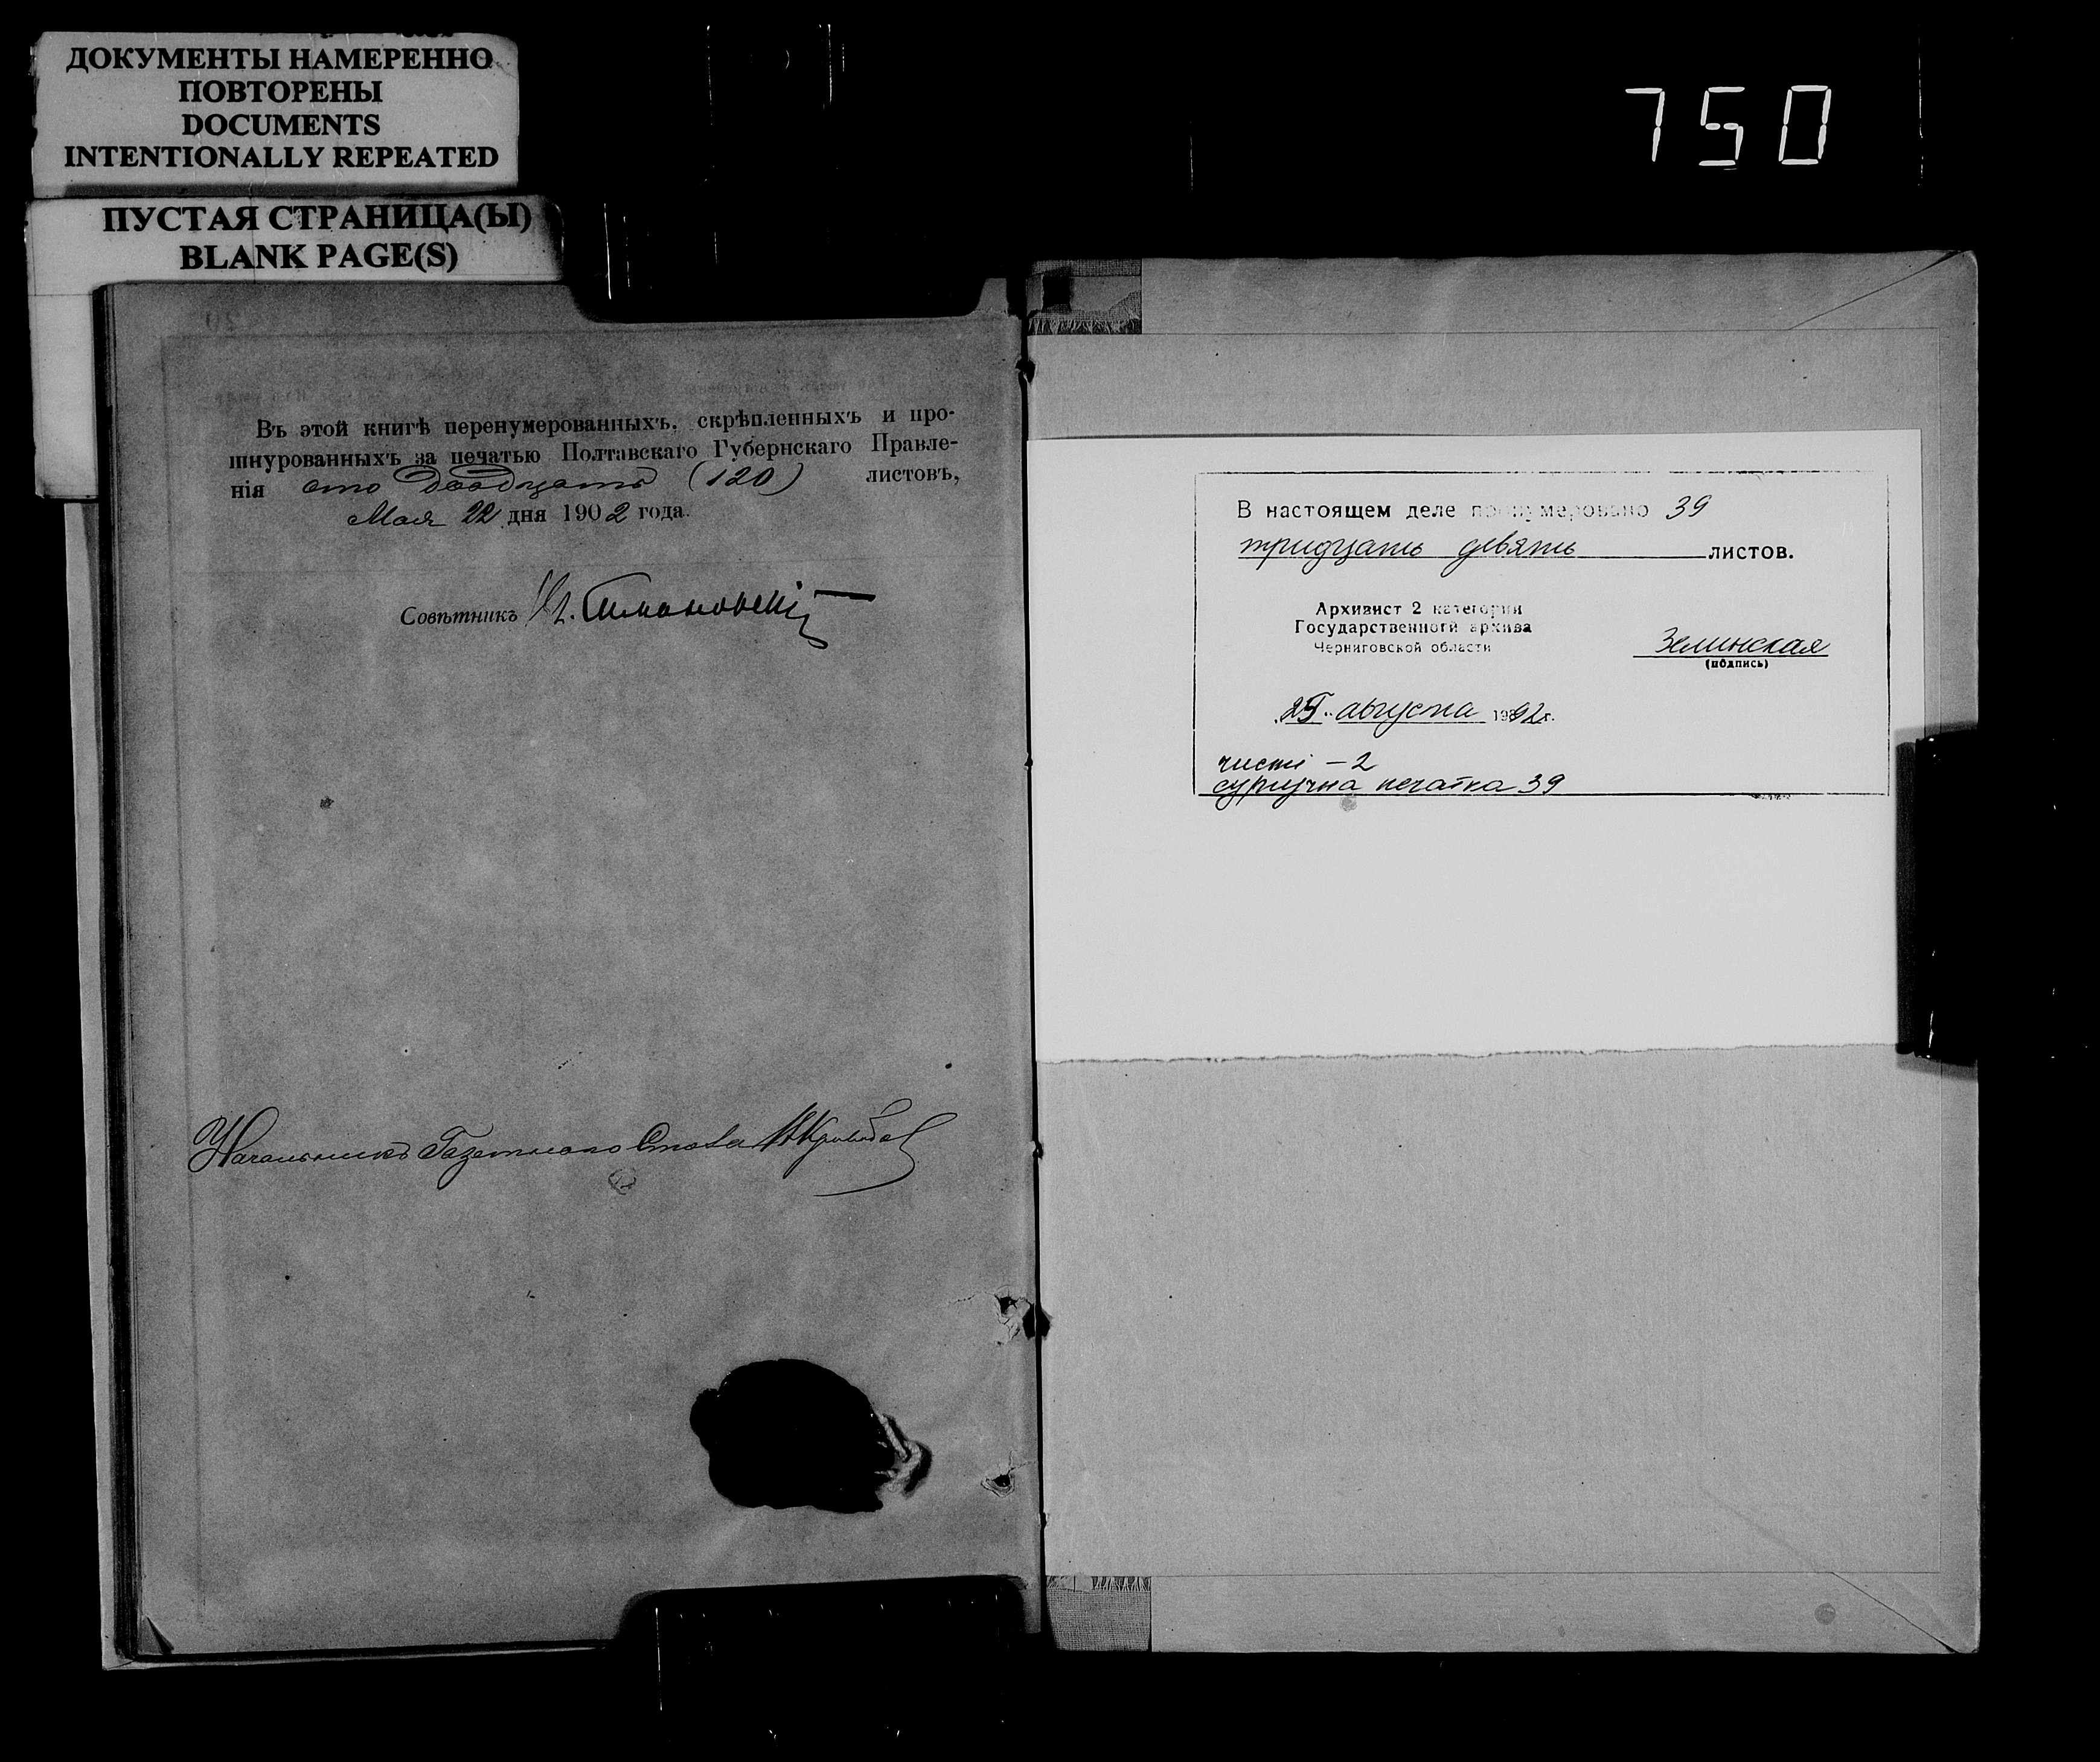 ДОКУМЕНТЫ НАМЕРЕННО
ПОВТОРЕНЫ
DOCUMENTS
INTENTIONALLY REPEATED
ПУСТАЯ СТРАНИЦА(Ы)
BLANK PAGE(S)
750
Въ этой книгѣ перенумерованныхъ, скрѣпленныхъ и про-
шнурованныхъ за печатью Полтавскаго Губернскаго Правле-
нія сто двадцать (120) листовъ,
Мая 22 дня 1902 года.
Совѣтникъ
Начальникъ Газетнаго Стола
В настоящем деле пронумеровано 39
тридцать девять листов.
Архивист 2 категории
Государственного архива
Черниговской области
Зелинская
(подпись)
августа 1992 г.
чисті – 2
сургучна печатка 39